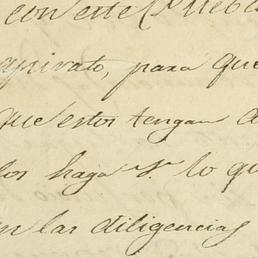 con este Pueb
para que
que estos tengan a
los haga Sr. lo qu
en las diligencias